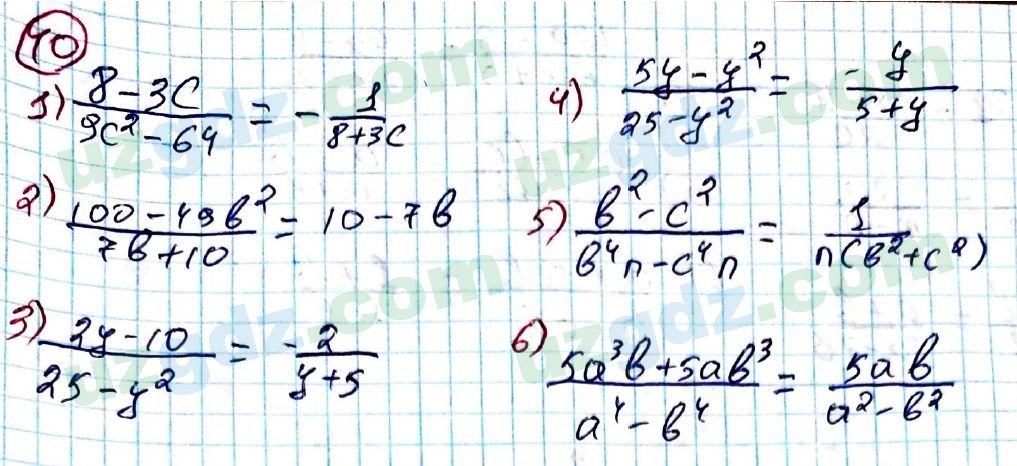 10
1) (8-3c)/(9c²-64) = -1/(8+3c)
2) (100-49b²)/(7b+10) = 10-7b
3) (2y-10)/(25-y²) = -2/(y+5)
4) (5y-y²)/(25-y²) = -y/(5+y)
5) (b²-c²)/(b⁴n-c⁴n) = 1/(n(b²+c²))
6) (5a³b+5ab³)/(a⁴-b⁴) = 5ab/(a²-b²)
uzgdz.com
uzgdz.com
uzgdz.com
uzgdz.com